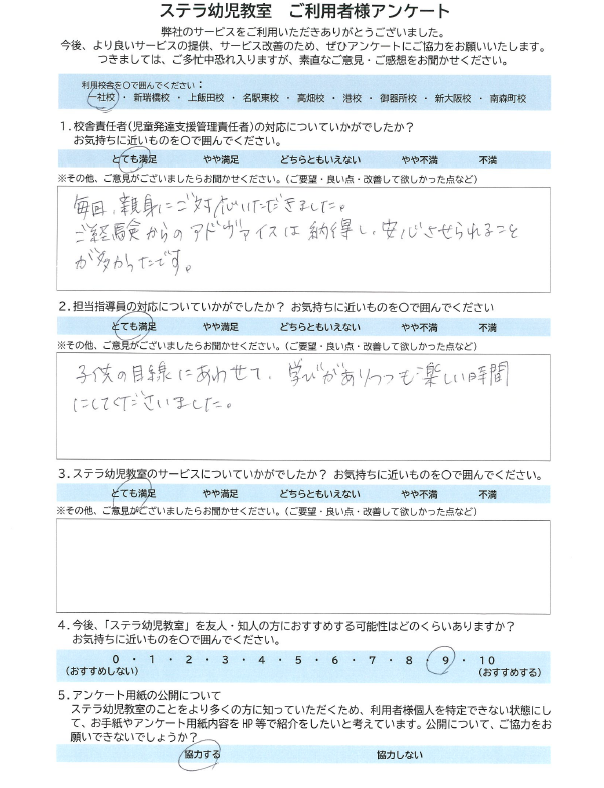 ステラ幼児教室　ご利用者様アンケート
弊社のサービスをご利用いただきありがとうございました。
今後、より良いサービスの提供、サービス改善のため、ぜひアンケートにご協力をお願いいたします。
つきましては、ご多忙中恐れ入りますが、素直なご意見・ご感想をお聞かせください。
利用校舎を〇で囲んでください：
一社校 ・ 新瑞橋校 ・ 上飯田校 ・ 名駅東校 ・ 高畑校 ・ 港校 ・ 御器所校 ・ 新大阪校 ・ 南森町校
１. 校舎責任者(児童発達支援管理責任者)の対応についていかがでしたか？
お気持ちに近いものを〇で囲んでください。
とても満足　やや満足　どちらともいえない　やや不満　不満
※その他、ご意見がございましたらお聞かせください。（ご要望・良い点・改善して欲しかった点など）
毎回、親身にご対応いただきました。
ご経験からのアドヴァイスは納得し、安心させられること
が多かったです。
２. 担当指導員の対応についていかがでしたか？ お気持ちに近いものを〇で囲んでください
とても満足　やや満足　どちらともいえない　やや不満　不満
※その他、ご意見がございましたらお聞かせください。（ご要望・良い点・改善して欲しかった点など）
子供の目線にあわせて、学びがありつつも楽しい時間
にしてくださいました。
３. ステラ幼児教室のサービスについていかがでしたか？ お気持ちに近いものを〇で囲んでください。
とても満足　やや満足　どちらともいえない　やや不満　不満
※その他、ご意見がございましたらお聞かせください。（ご要望・良い点・改善して欲しかった点など）
４. 今後、「ステラ幼児教室」を友人・知人の方におすすめする可能性はどのくらいありますか？
お気持ちに近いものを〇で囲んでください。
0 ・ 1 ・ 2 ・ 3 ・ 4 ・ 5 ・ 6 ・ 7 ・ 8 ・ 9 ・ 10
（おすすめしない）　（おすすめする）
５. アンケート用紙の公開について
ステラ幼児教室のことをより多くの方に知っていただくため、利用者様個人を特定できない状態にし
て、お手紙やアンケート用紙内容を HP 等で紹介をしたいと考えています。公開について、ご協力をお
願いできないでしょうか？
協力する　協力しない